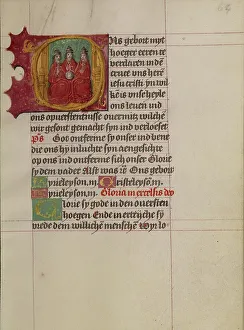 Ons gebort myt
hoeger eeren te
verclaren inden
cruce vns here
ihesu cristi yn wil
ken is onse heyl
ons leuen ind
ons opuerstentnisse ouermitz wilche
wir gesont gemacht syn ind verloeset
Ps Got ontferme sy onser ind bene
die ons hy in luchte syn aensicht ouer
ons ind ontferme sich onser Glorie
sy dem vader Alst was in Ons gebor
Kyrieleyson iij Cristeleyson iij
Kyrieleyson iij Gloria in excelsis deo
Glorie sy gode in den ouersten
hoegen Ende in ertrijche sy
vrede dem williche menschen Wy lo